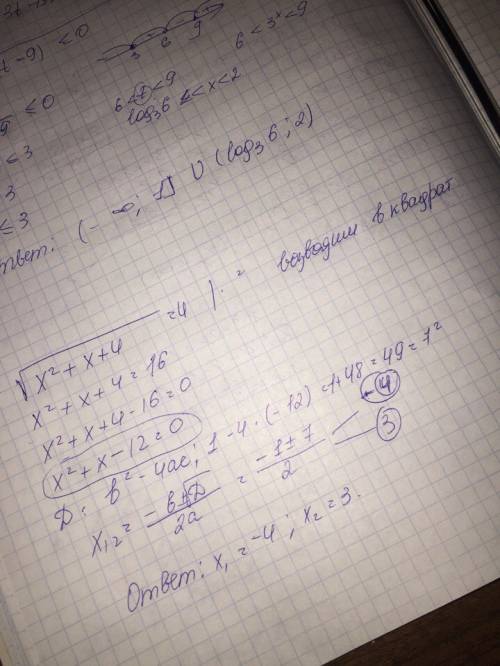 t-9) <0
3 6 9
6 < 3ˣ < 9
≤ 0
6 < t < 9
log₃6 < x < 2
≤ 3
3
≤ 3
Ответ: (-∞; 1] U (log₃6; 2)
√x²+x+4 =4 |·² возводим в квадрат
x²+x+4=16
x²+x+4-16=0
x²+x-12=0
D: b²-4ac, 1-4·(-12)=1+48=49=7²
x₁,₂= -b±√D / 2a = -1±7 / 2
-4
3
Ответ: x₁=-4; x₂=3.